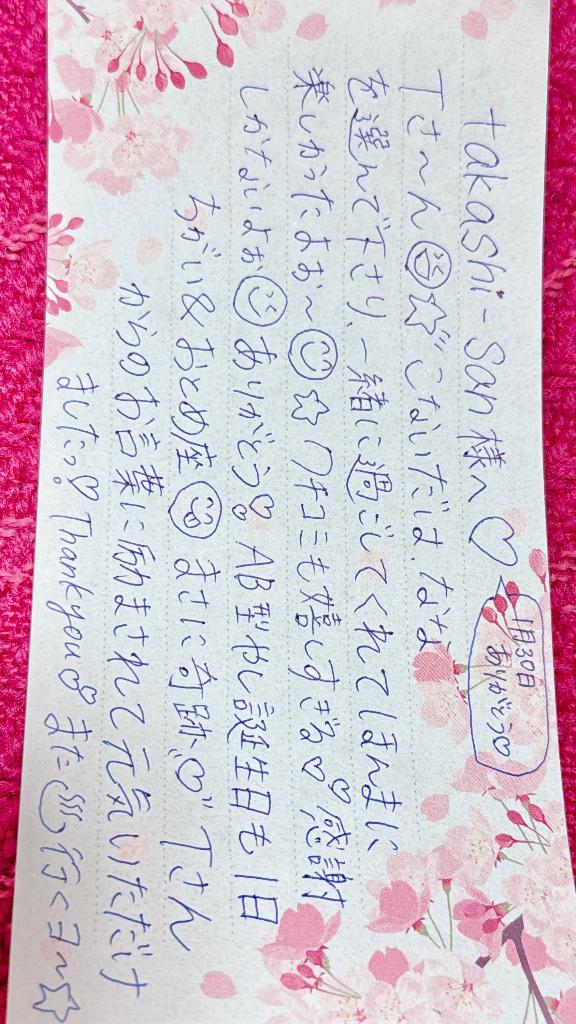 takashi-san様へ♡
1月30日
ありがとう♡
Tさ〜ん☺☆こないだは、なな
を選んで下さり、一緒に過ごしてくれてほんまに
楽しかったよぉ〜☺☆クチコミも嬉しすぎる♡♡感謝
しかないよぉ☺ありがとう♡AB型やし誕生日も1日
ちがい&おとめ座☺まさに奇跡♡Tさん
からのお言葉に励まされて元気いただけ
ましたっ♡Thankyou♡また♨行くヨ〜☆